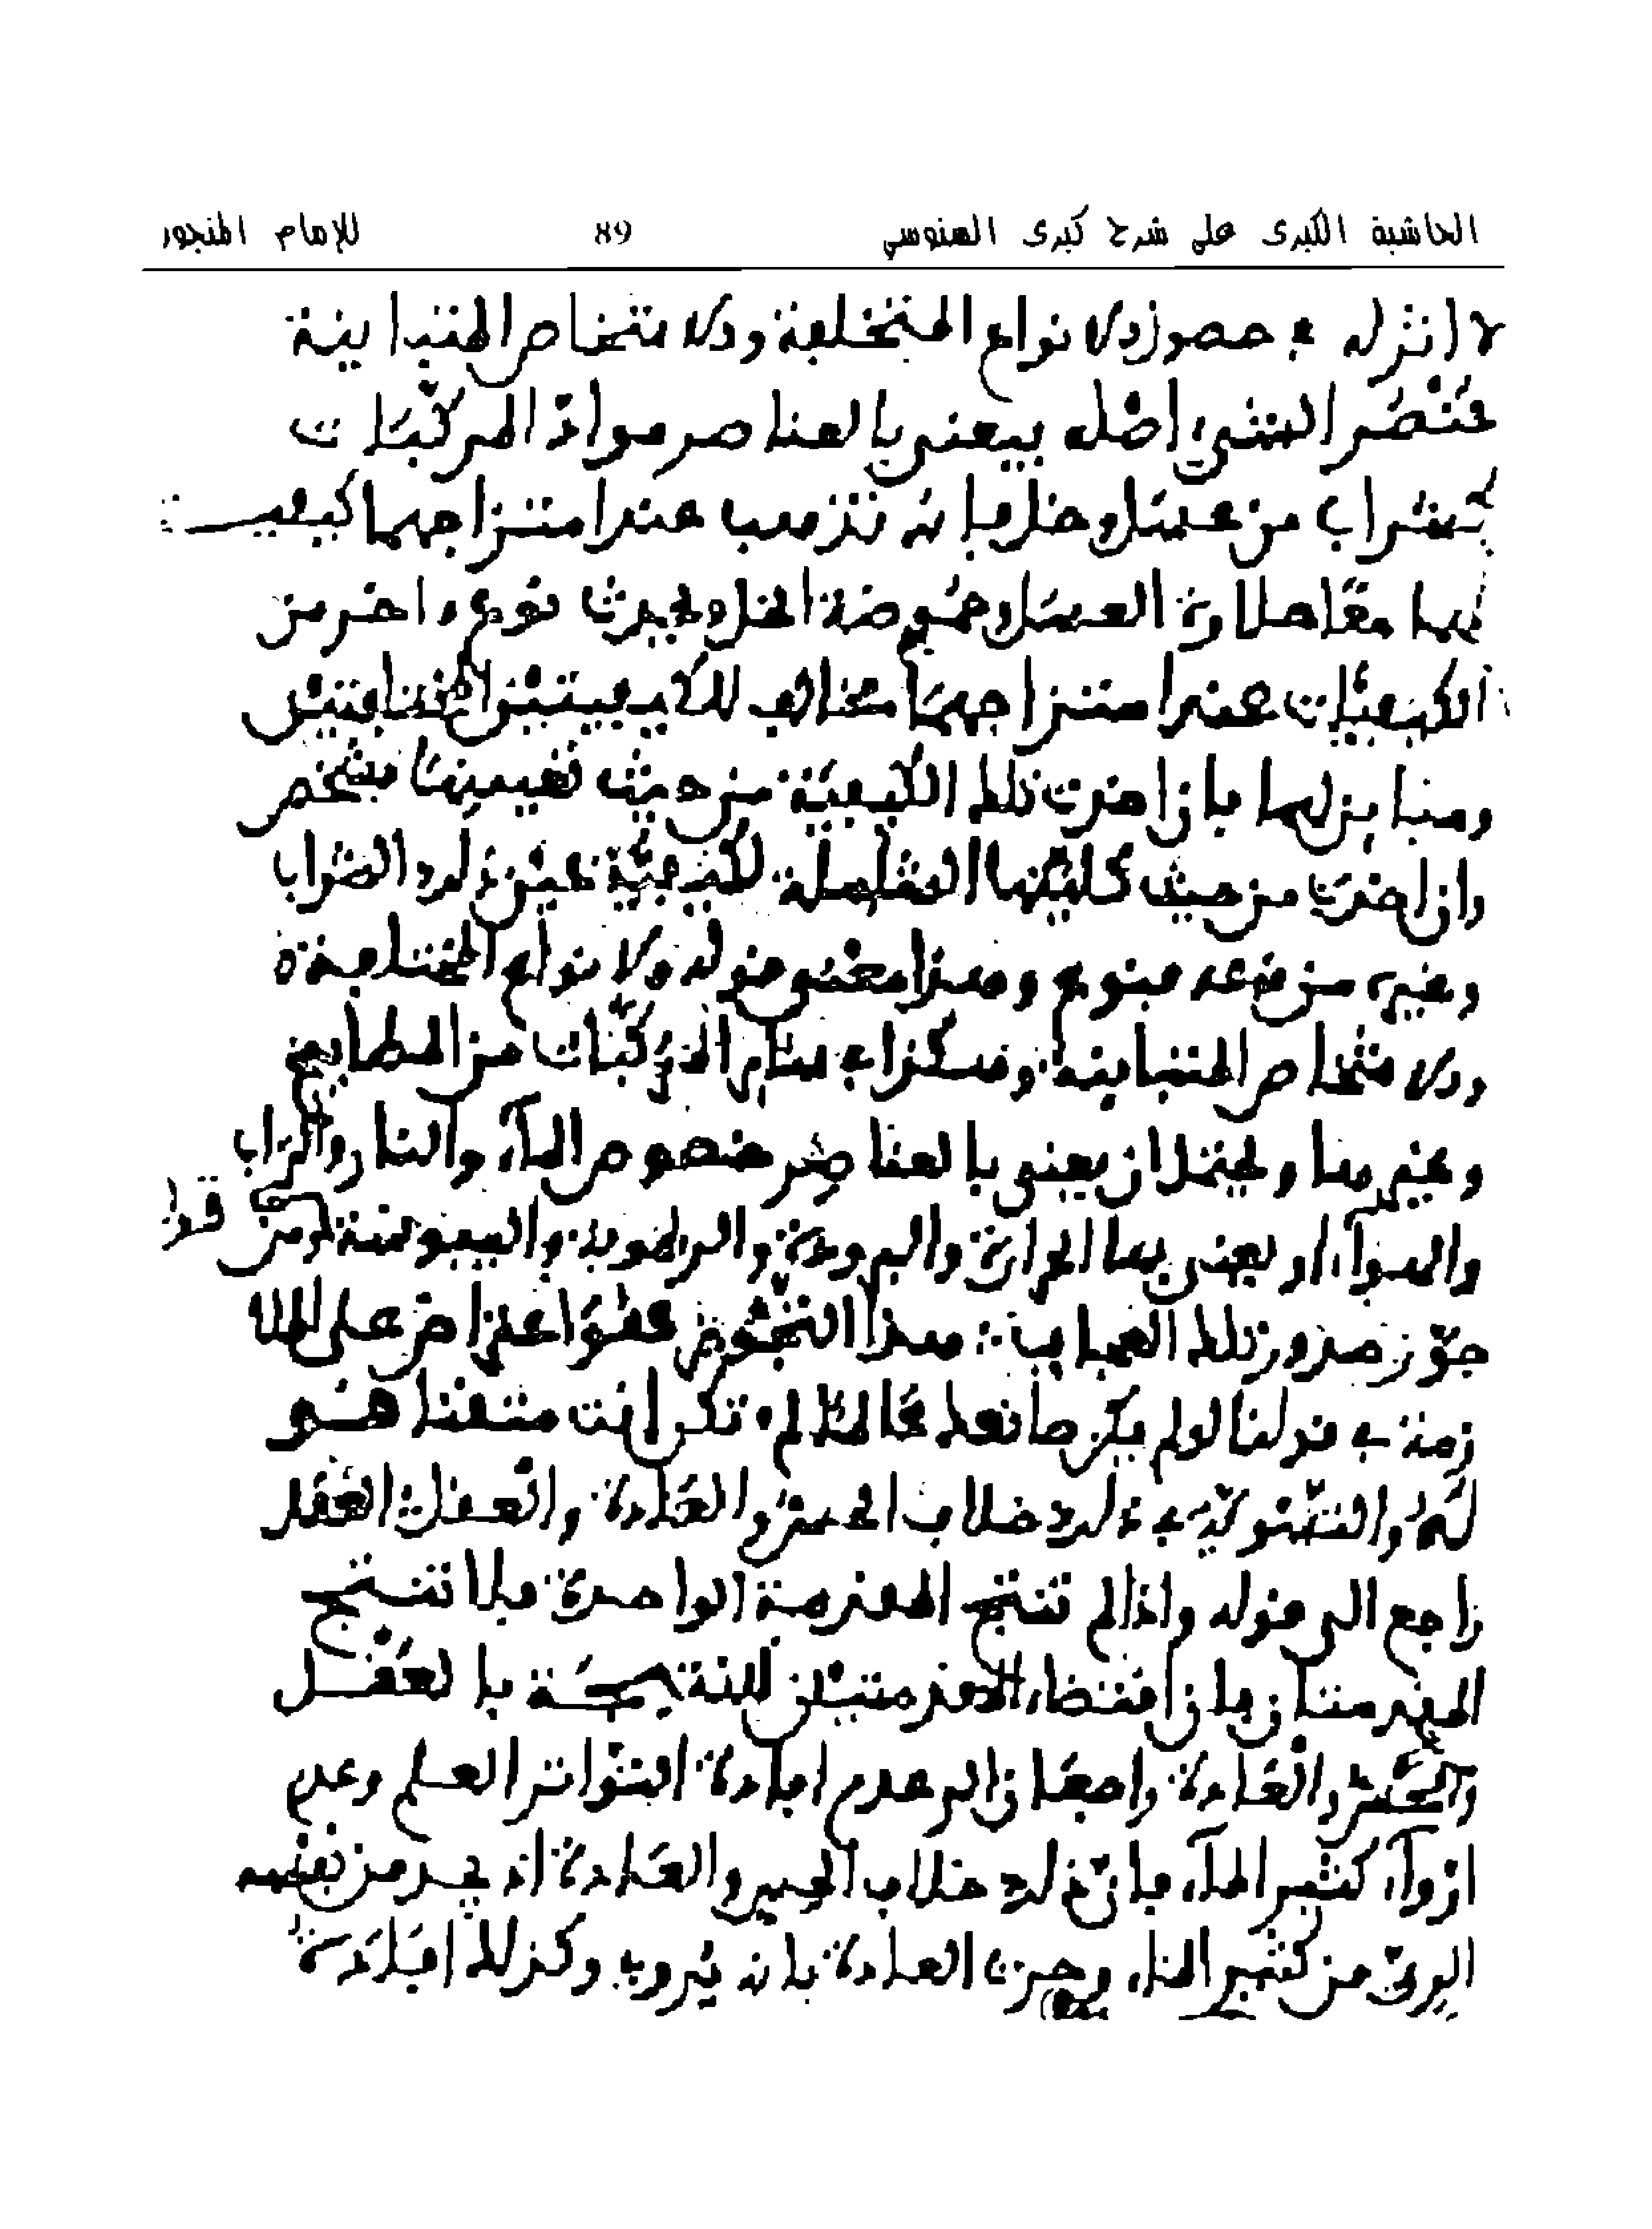 الحاشية الكبرى على شرح كبرى السنوسي 89 للإمام المنجور
لا اثر له في حصول الانواع المختلفة والاشخاص المتباينة
عنصر الشيء اصله يعني بالعناصر مواد المركبات
كشراب من عسل وخل فإنه تذهب عند امتزاجهما كيفيـ
ـتهما معا حلاوة العسل وحموضة الخل ويحدث نوع ءاخر من
الكيفيات عند امتزاجهما مخالف للكيفيتين السابقتين
ومباين لهما فإن اخذت تلك الكيفية من حيث تعيينها فشخص
وان اخذت من حيث كليتها الشاملة لكيفية عين ذلك الشراب
وغيره من نوعه فنوع وهذا معنى قوله والانواع المختلفة
والاشخاص المتباينة وهكذا في سائر المركبات من المطابيخ
وغيرها ويحتمل ان يعني بالعناصر خصوص الماء والنار والتراب
والهواء او يعني بها الحرارة والبرودة والرطوبة واليبوسة
جوز صدور تلك العجايب هذا التجويز عقلا اعتراض على الملا
زمة في قولنا لو لم يكن صانعك مخالفا لم تكن انت متقنا هو
له والتشويش في ذلك خلاف الحس والعادة والعقل العقل
راجع الى قوله واذا لم تنتج المقدمة الواحدة فلا تنتج
المقدمتان فإن اقتضاء المقدمتين للنتيجة بالعقل
والحس والعادة راجعان الى عدم افادة التواتر العلم وعدم
ارواء كثير الماء فإن ذلك خلاف الحس والعادة اذ يجد من نفسه
الري من كثير الماء وجرت العادة بانه يروي وكذلك افادة